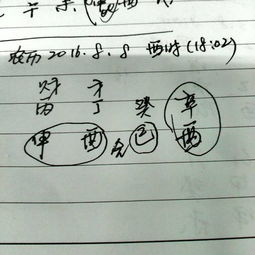 农历 2016.8.8 酉时(18:02)
财 才
丙 丁 癸 辛
申 酉 巳 酉